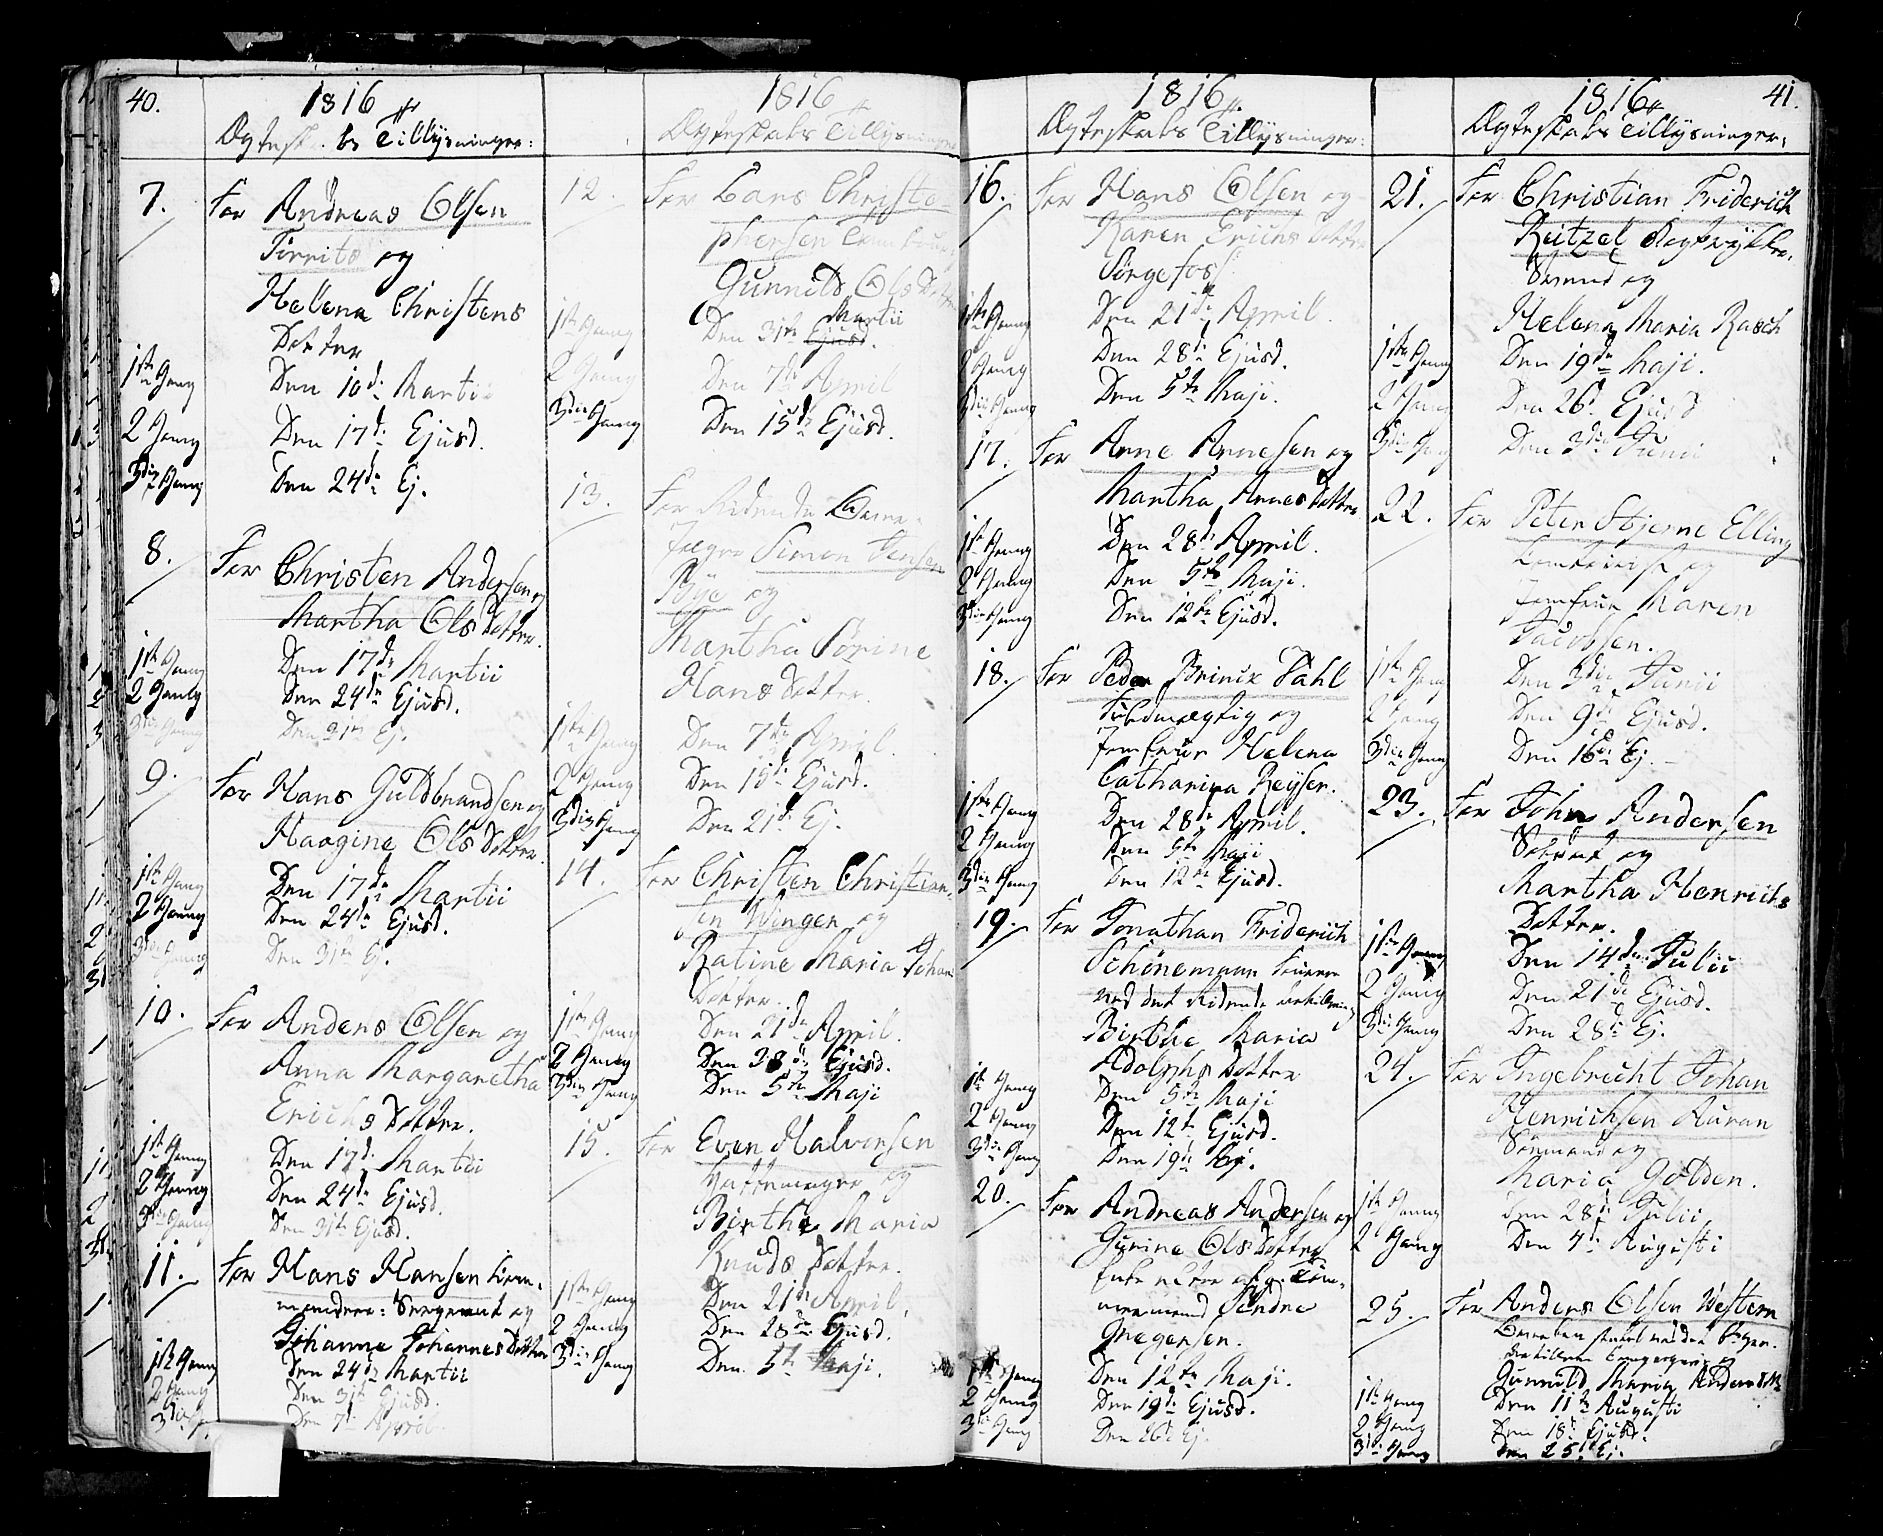 40.
1816
Ægtesk. bs Tillysninger:
7. For Andreas Olsen
Torrits og
Helena Christens
Dotter
1ste Gang Den 10de Martii
2 Gang Den 17de Ejusd.
3die Gang Den 24de Ej.
8. For Christen Andersen og
Martha Ols Dotter.
1ste Gang Den 17de Martii
2 Gang Den 24de Ejusd.
3die Gang Den 31te Ej.
9. For Hans Guldbrandsen og
Haagine Ols Dotter.
1ste Gang Den 17de Martii
2 Gang Den 24de Ejusd.
3die Gang Den 31te Ej.
10. For Anders Olsen og
Anna Margaretha
Erichs Dotter.
1ste Gang Den 17de Martii
2 Gang Den 24de Ejusd.
3die Gang Den 31te Ejusd.
11. For Hans Hansen
Sergeant og
Johanne Johannes Dotter
1ste Gang Den 24de Martii
2 Gang Den 31te Ejusd.
3die G. Den 7de April
1816
Ægteskabs Tillysninger
12. For Lars Christo-
phersen
Gunnild Ols Dotter
Martii
1ste Gang Den 31te Ejusd.
2 Gang Den 7de April
3die Gang Den 15de Ejusd.
13. For Ridende
Jæger Simon Jensen
Rÿe og
Martha Sørine
Hans Dotter
1ste Gang Den 7de April.
2 Gang Den 15de Ejusd.
3die Gang Den 21de Ej.
14. For Christen Christian-
sen Wingen og
Ratine Maria Johan
Dotter.
1ste Gang Den 21de April.
2 Gang Den 28de Ejusd.
3die Gang Den 5te Maji
15. For Even Halvorsen
og
Birthe Maria
Knuds Dotter.
1ste Gang Den 21de April.
2 Gang Den 28de Ejusd.
3die Gang Den 5te Maji.
1816.
Ægteskabs Tillysninger:
16. For Hans Olsen og
Karen Erichs Dotter
Sørgefoss
1ste Gang Den 21de April.
2 Gang Den 28de Ejusd.
3die Gang Den 5te Maji.
17. For Arne Arnesen og
Martha Arnes Dotter
1ste Gang Den 28de April.
2 Gang Den 5te Maji.
3die Gang Den 12te Ejusd.
18. For Peder Brinck Dahl
Fuldmægtig og
Jomfrue Helena
Catharina Keyser.
1ste Gang Den 28de April.
2 Gang Den 5te Maji
3die Gang Den 12te Ejusd.
19. For Jonathan Friderich
Schönemann
ved det Ridende
Birthe Maria
Adolphs Dotter
1te Gang Den 5te Maji
2 Gang Den 12te Ejusd.
3die Gang Den 19de Ej.
20. For Andreas Andersen og
Gurine Ols Dotter
Enke efter afg. Tøm-
mermand Sindre
Gregersen.
1ste Gang Den 12te Maji.
2 Gang Den 19de Ejusd.
3die Gang Den 26de Ej.
1816.
41.
Ægteskabs Tillysninger:
21. For Christian Friderich
Reitzel
og
Helena Maria Rasch
1ste Gang Den 19de Maji.
2 Gang Den 26de Ejusd
3die Gang Den 3die Junii
22. For Peter Stjerne Elling
og
Jomfrue Maren
Jacobsen.
1ste Gang Den 3die Junii
2 Gang Den 9de Ejusd.
3die Gang Den 16de Ej.
23. For John Andersen
og
Martha Henrichs
Dotter.
1ste Gang Den 14de Julii
2 Gang Den 21de Ejusd.
3die Gang Den 28de Ej.
24. For Ingebrecht Johan
Henrichsen Auran
Sømand og
Maria Golden.
1ste Gang Den 28de Julii
2 Gang Den 4de Augusti
25. For Anders Olsen Western
Gunnild Maria Anders Dtr
1ste Gang Den 11te Augusti
2 Gang Den 18de Ejusd.
3die Gang Den 25de Ej.